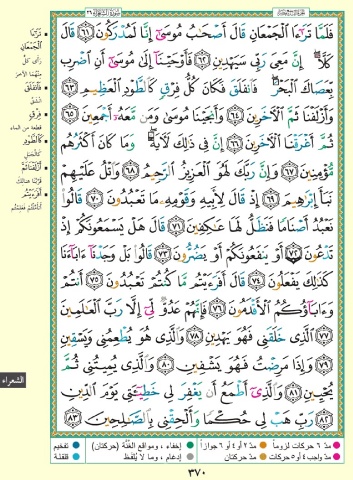 فَلَمَّا تَرَٰٓءَا ٱلْجَمْعَانِ قَالَ أَصْحَٰبُ مُوسَىٰٓ إِنَّا لَمُدْرَكُونَ ٦١ قَالَ
كَلَّآ إِنَّ مَعِىَ رَبِّى سَيَهْدِينِ ٦٢ فَأَوْحَيْنَآ إِلَىٰ مُوسَىٰٓ أَنِ ٱضْرِب
بِّعَصَاكَ ٱلْبَحْرَ فَٱنفَلَقَ فَكَانَ كُلُّ فِرْقٍ كَٱلطَّوْدِ ٱلْعَظِيمِ ٦٣
وَأَزْلَفْنَا ثَمَّ ٱلْءَاخَرِينَ ٦٤ وَأَنجَيْنَا مُوسَىٰ وَمَن مَّعَهُۥٓ أَجْمَعِينَ ٦٥
ثُمَّ أَغْرَقْنَا ٱلْءَاخَرِينَ ٦٦ إِنَّ فِى ذَٰلِكَ لَءَايَةً وَمَا كَانَ أَكْثَرُهُم
مُّؤْمِنِينَ ٦٧ وَإِنَّ رَبَّكَ لَهُوَ ٱلْعَزِيزُ ٱلرَّحِيمُ ٦٨ وَٱتْلُ عَلَيْهِمْ
نَبَأَ إِبْرَٰهِيمَ ٦٩ إِذْ قَالَ لِأَبِيهِ وَقَوْمِهِۦ مَا تَعْبُدُونَ ٧٠ قَالُوا۟
نَعْبُدُ أَصْنَامًا فَنَظَلُّ لَهَا عَٰكِفِينَ ٧١ قَالَ هَلْ يَسْمَعُونَكُمْ إِذْ
تَدْعُونَ ٧٢ أَوْ يَنفَعُونَكُمْ أَوْ يَضُرُّونَ ٧٣ قَالُوا۟ بَلْ وَجَدْنَآ ءَابَآءَنَا
كَذَٰلِكَ يَفْعَلُونَ ٧٤ قَالَ أَفَرَءَيْتُم مَّا كُنتُمْ تَعْبُدُونَ ٧٥ أَنتُمْ
وَءَابَآؤُكُمُ ٱلْأَقْدَمُونَ ٧٦ فَإِنَّهُمْ عَدُوٌّ لِّىٓ إِلَّا رَبَّ ٱلْعَٰلَمِينَ
٧٧ ٱلَّذِى خَلَقَنِى فَهُوَ يَهْدِينِ ٧٨ وَٱلَّذِى هُوَ يُطْعِمُنِى وَيَسْقِينِ
٧٩ وَإِذَا مَرِضْتُ فَهُوَ يَشْفِينِ ٨٠ وَٱلَّذِى يُمِيتُنِى ثُمَّ
يُحْيِينِ ٨١ وَٱلَّذِىٓ أَطْمَعُ أَن يَغْفِرَ لِى خَطِيٓـَٔتِى يَوْمَ ٱلدِّينِ
٨٢ رَبِّ هَبْ لِى حُكْمًا وَأَلْحِقْنِى بِٱلصَّٰلِحِينَ ٨٣
تَرَٰٓءَا
ٱلْجَمْعَانِ
رأى كلّ
منهما الآخر
فَٱنفَلَقَ
انشق
فِرْقٍ
قطعة من الماء
كَٱلطَّوْدِ
كالجبل
أَزْلَفْنَا ثَمَّ
قرّبنا هنالك
أَفَرَءَيْتُم
الشعراء
مدّ ٦ حركات لزوماً مدّ ٢ أو ٤ أو ٦ جوازاً إخفاء، ومواقع الغُنَّة (حركتان) تفخيم
مدّ واجب ٤ أو ٥ حركات مدّ حركتان إدغام، وما لا يُلفظ قلقلة
٣٧٠